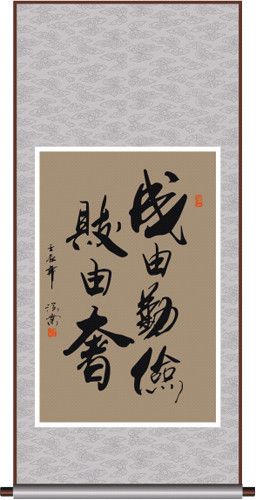 成由勤儉
敗由奢
壬辰年